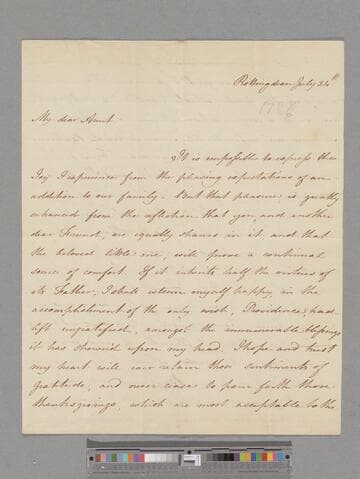 Rottingdean July 24th
My dear Aunt
It is impossible to express the
Joy I experience from the pleasing expectations of an
addition to our family. But that pleasure is greatly
enhanced from the reflection that you and another
dear Friend, are equally sharers in it, and that
the beloved little one, will prove a continual
source of comfort. If it inherits half the virtues of
its Father, I shall esteem myself happy, in the
accomplishment of the only wish, Providence, had
left ungratified, amongst the innumerable blessings
it has showered upon my head. I hope and trust
my heart will ever retain those sentiments of
gratitude, and never cease to pour forth those
thanksgivings, which are most acceptable to the